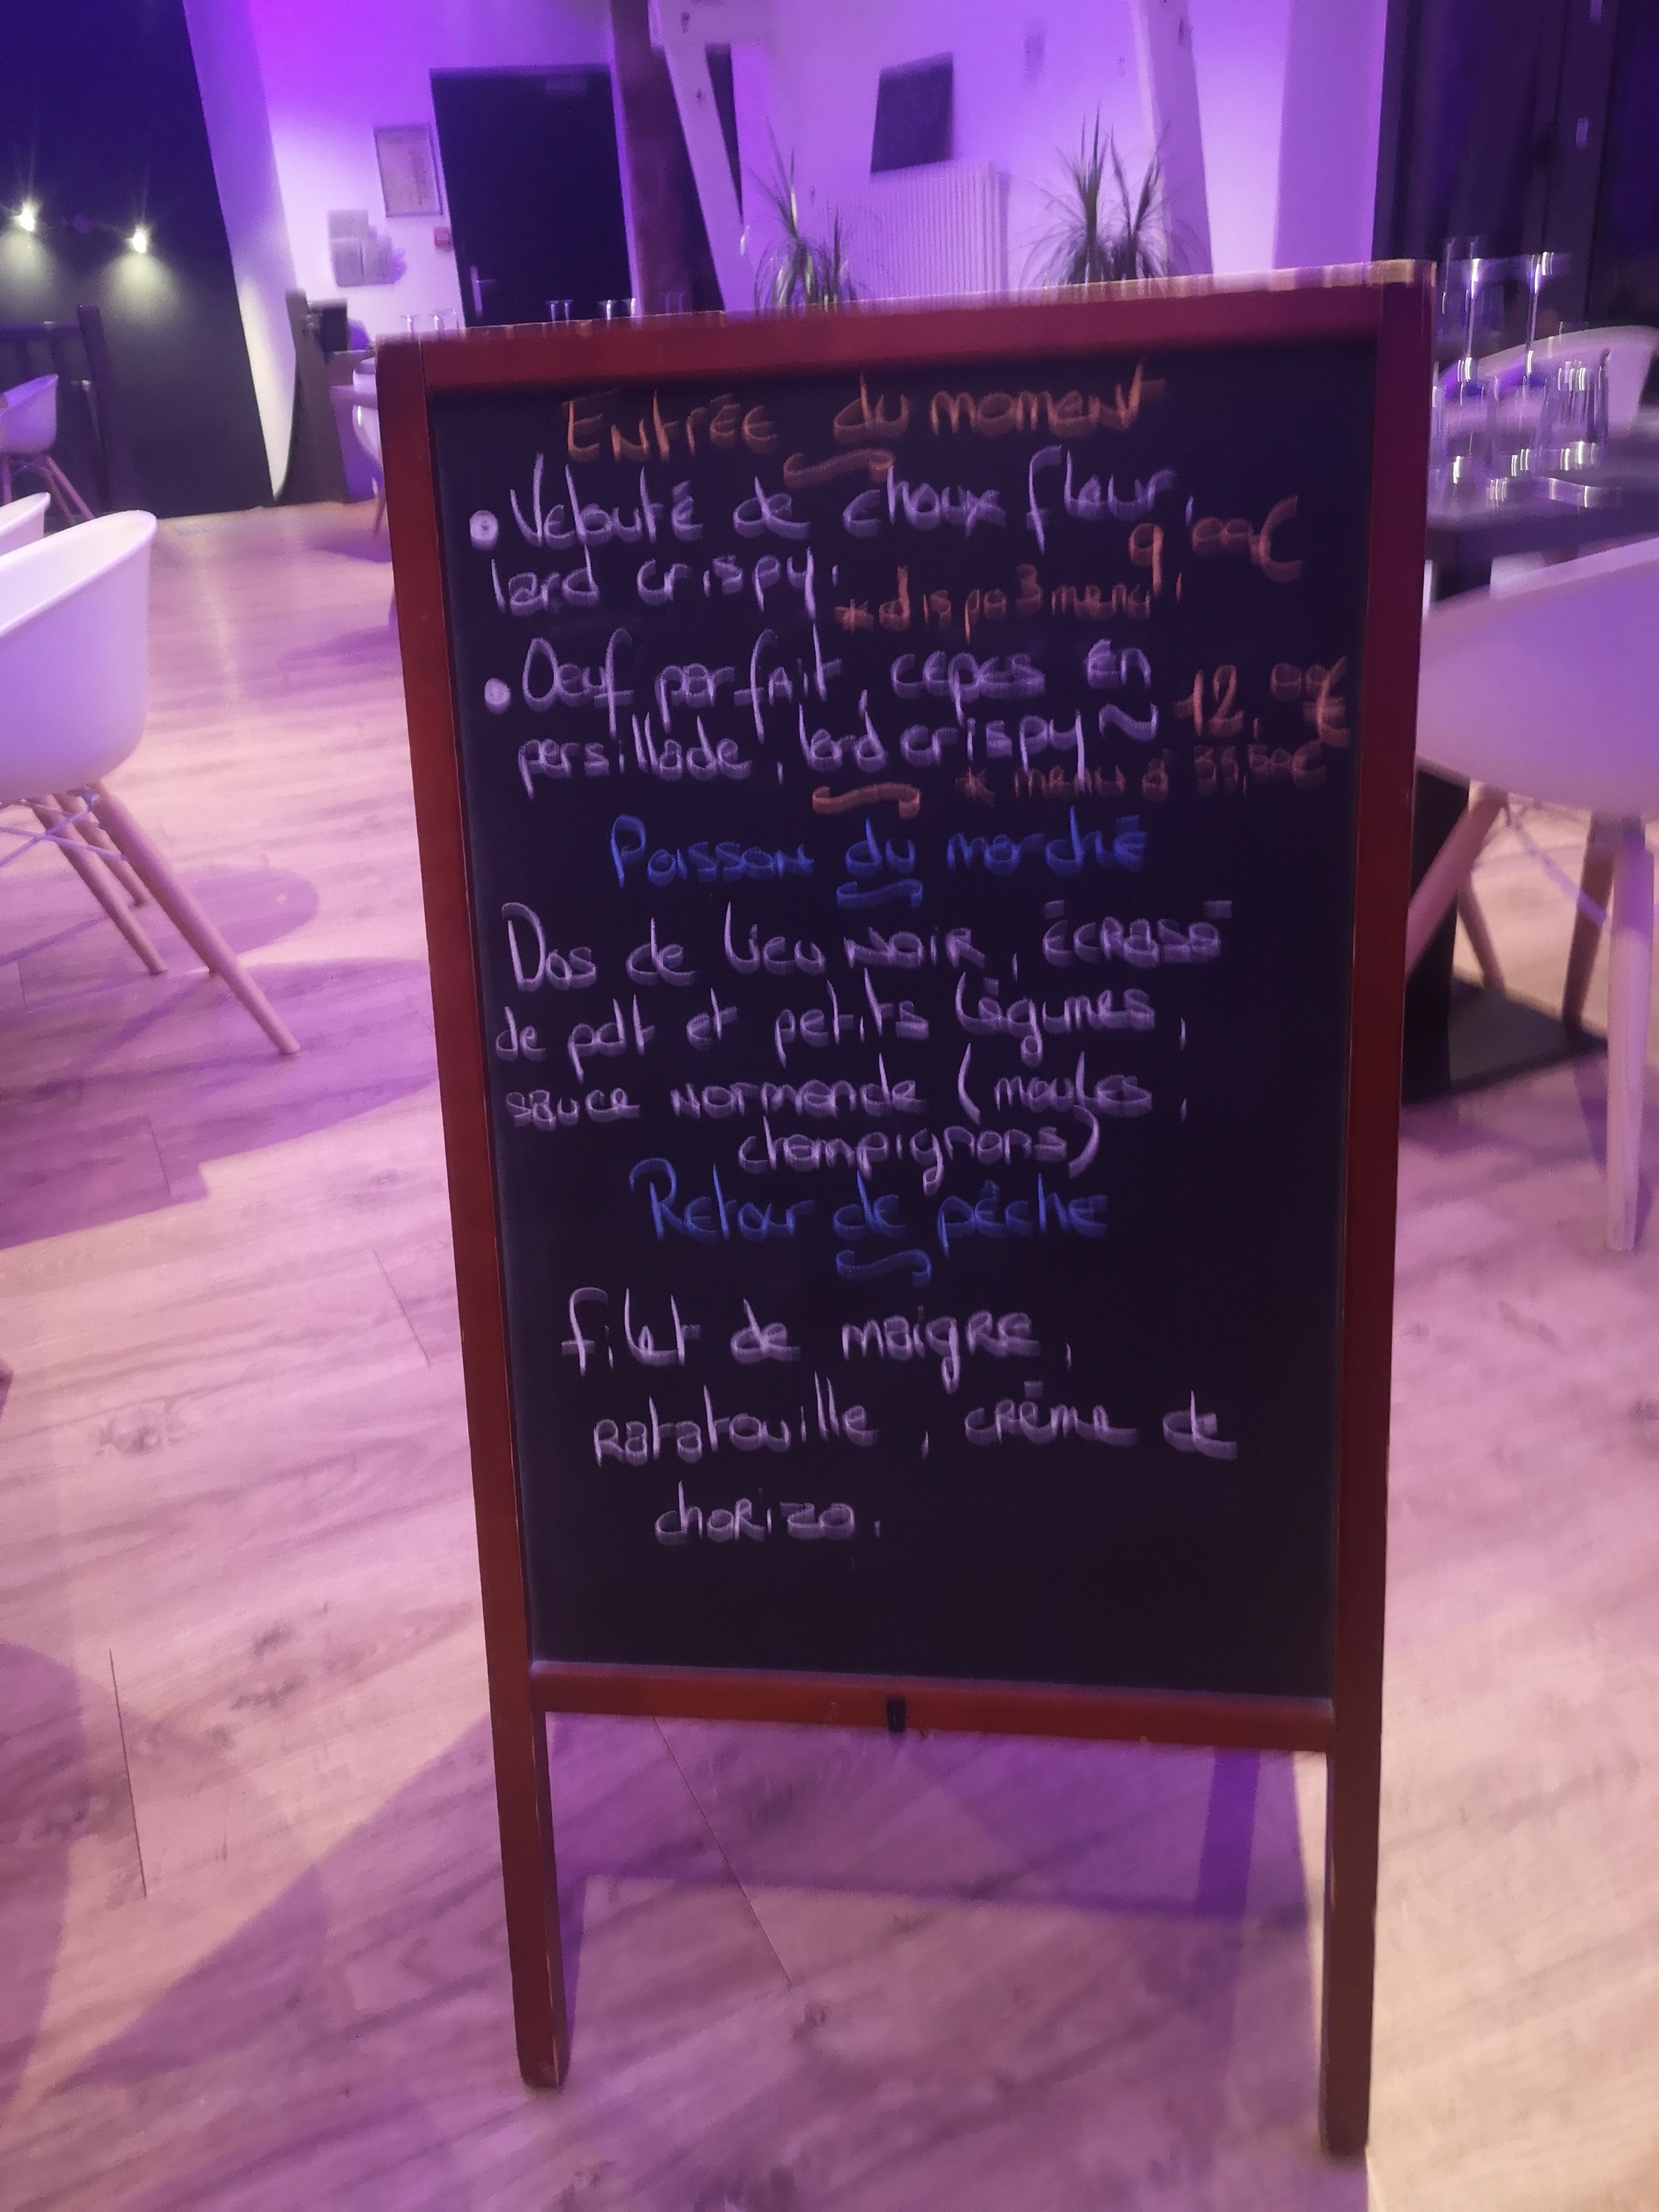 Entrée du moment
• Velouté de choux fleur,
lard crispy. 9,00€
*dispo 3 menu
• Oeuf parfait, cèpes en
persillade, lard crispy ~ 12,00€
* menu à €
Poisson du marché
Dos de lieu noir, écrasé
de pdt et petits légumes,
sauce normande (moules,
champignons)
Retour de pêche
filet de maigre,
ratatouille, crème de
chorizo.